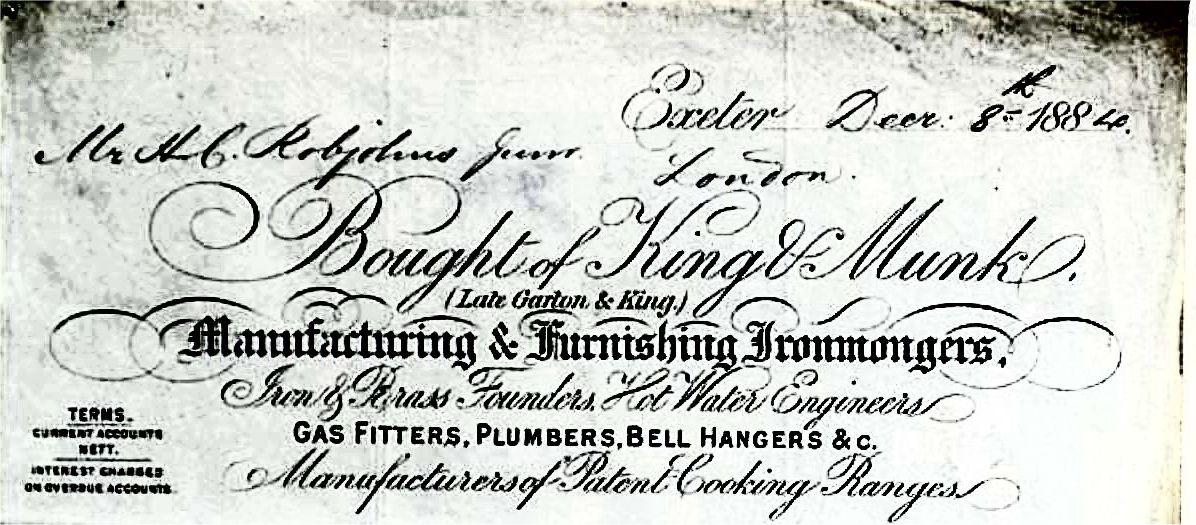 Exeter Decr. 8th 1884.
Mr H C. Robjohns Junr.
London.
Bought of King & Munk.
(Late Garton & King.)
Manufacturing & Furnishing Ironmongers,
Iron & Brass Founders, Hot Water Engineers
GAS FITTERS, PLUMBERS, BELL HANGERS & c.
Manufacturers of Patent Cooking Ranges
TERMS.
CURRENT ACCOUNTS
NETT.
INTEREST CHARGED
ON OVERDUE ACCOUNTS